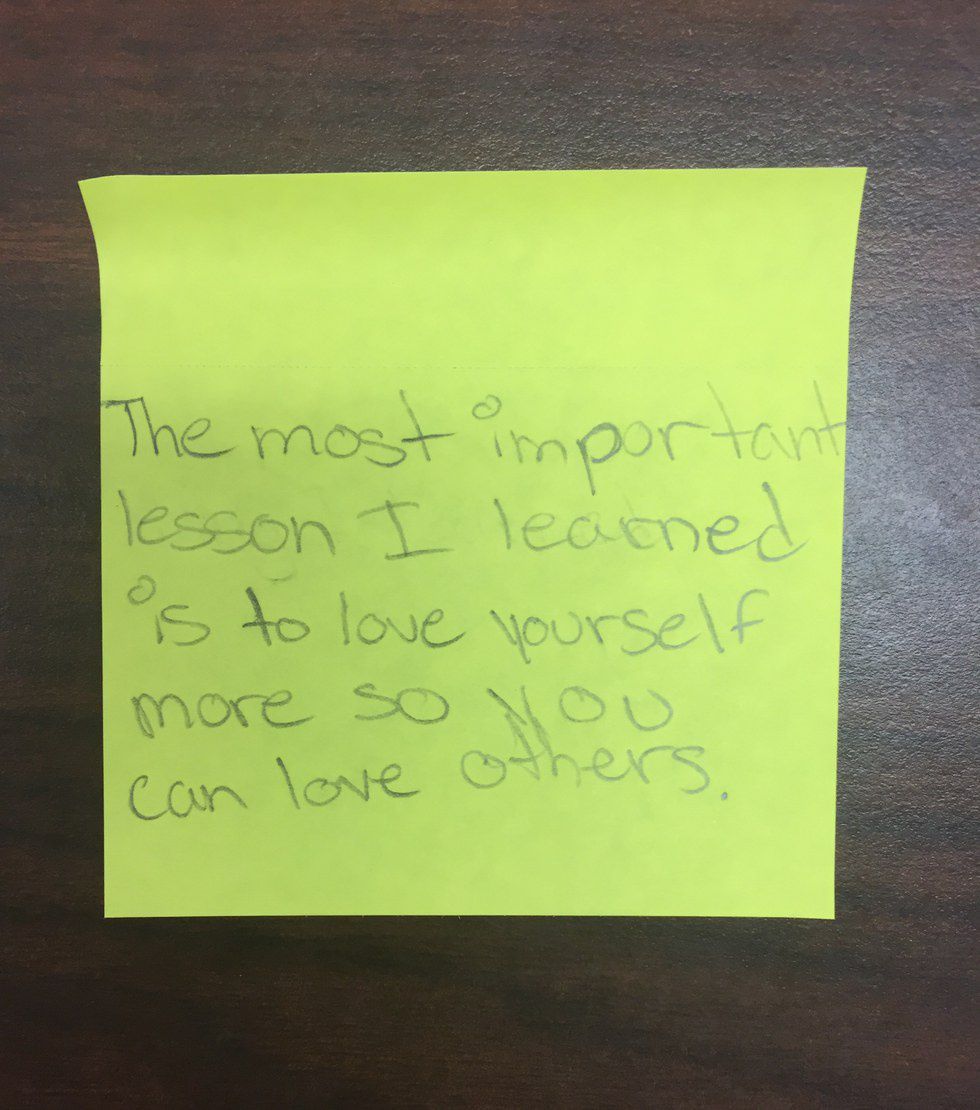 The most important
lesson I learned
is to love yourself
more so you
can love others.